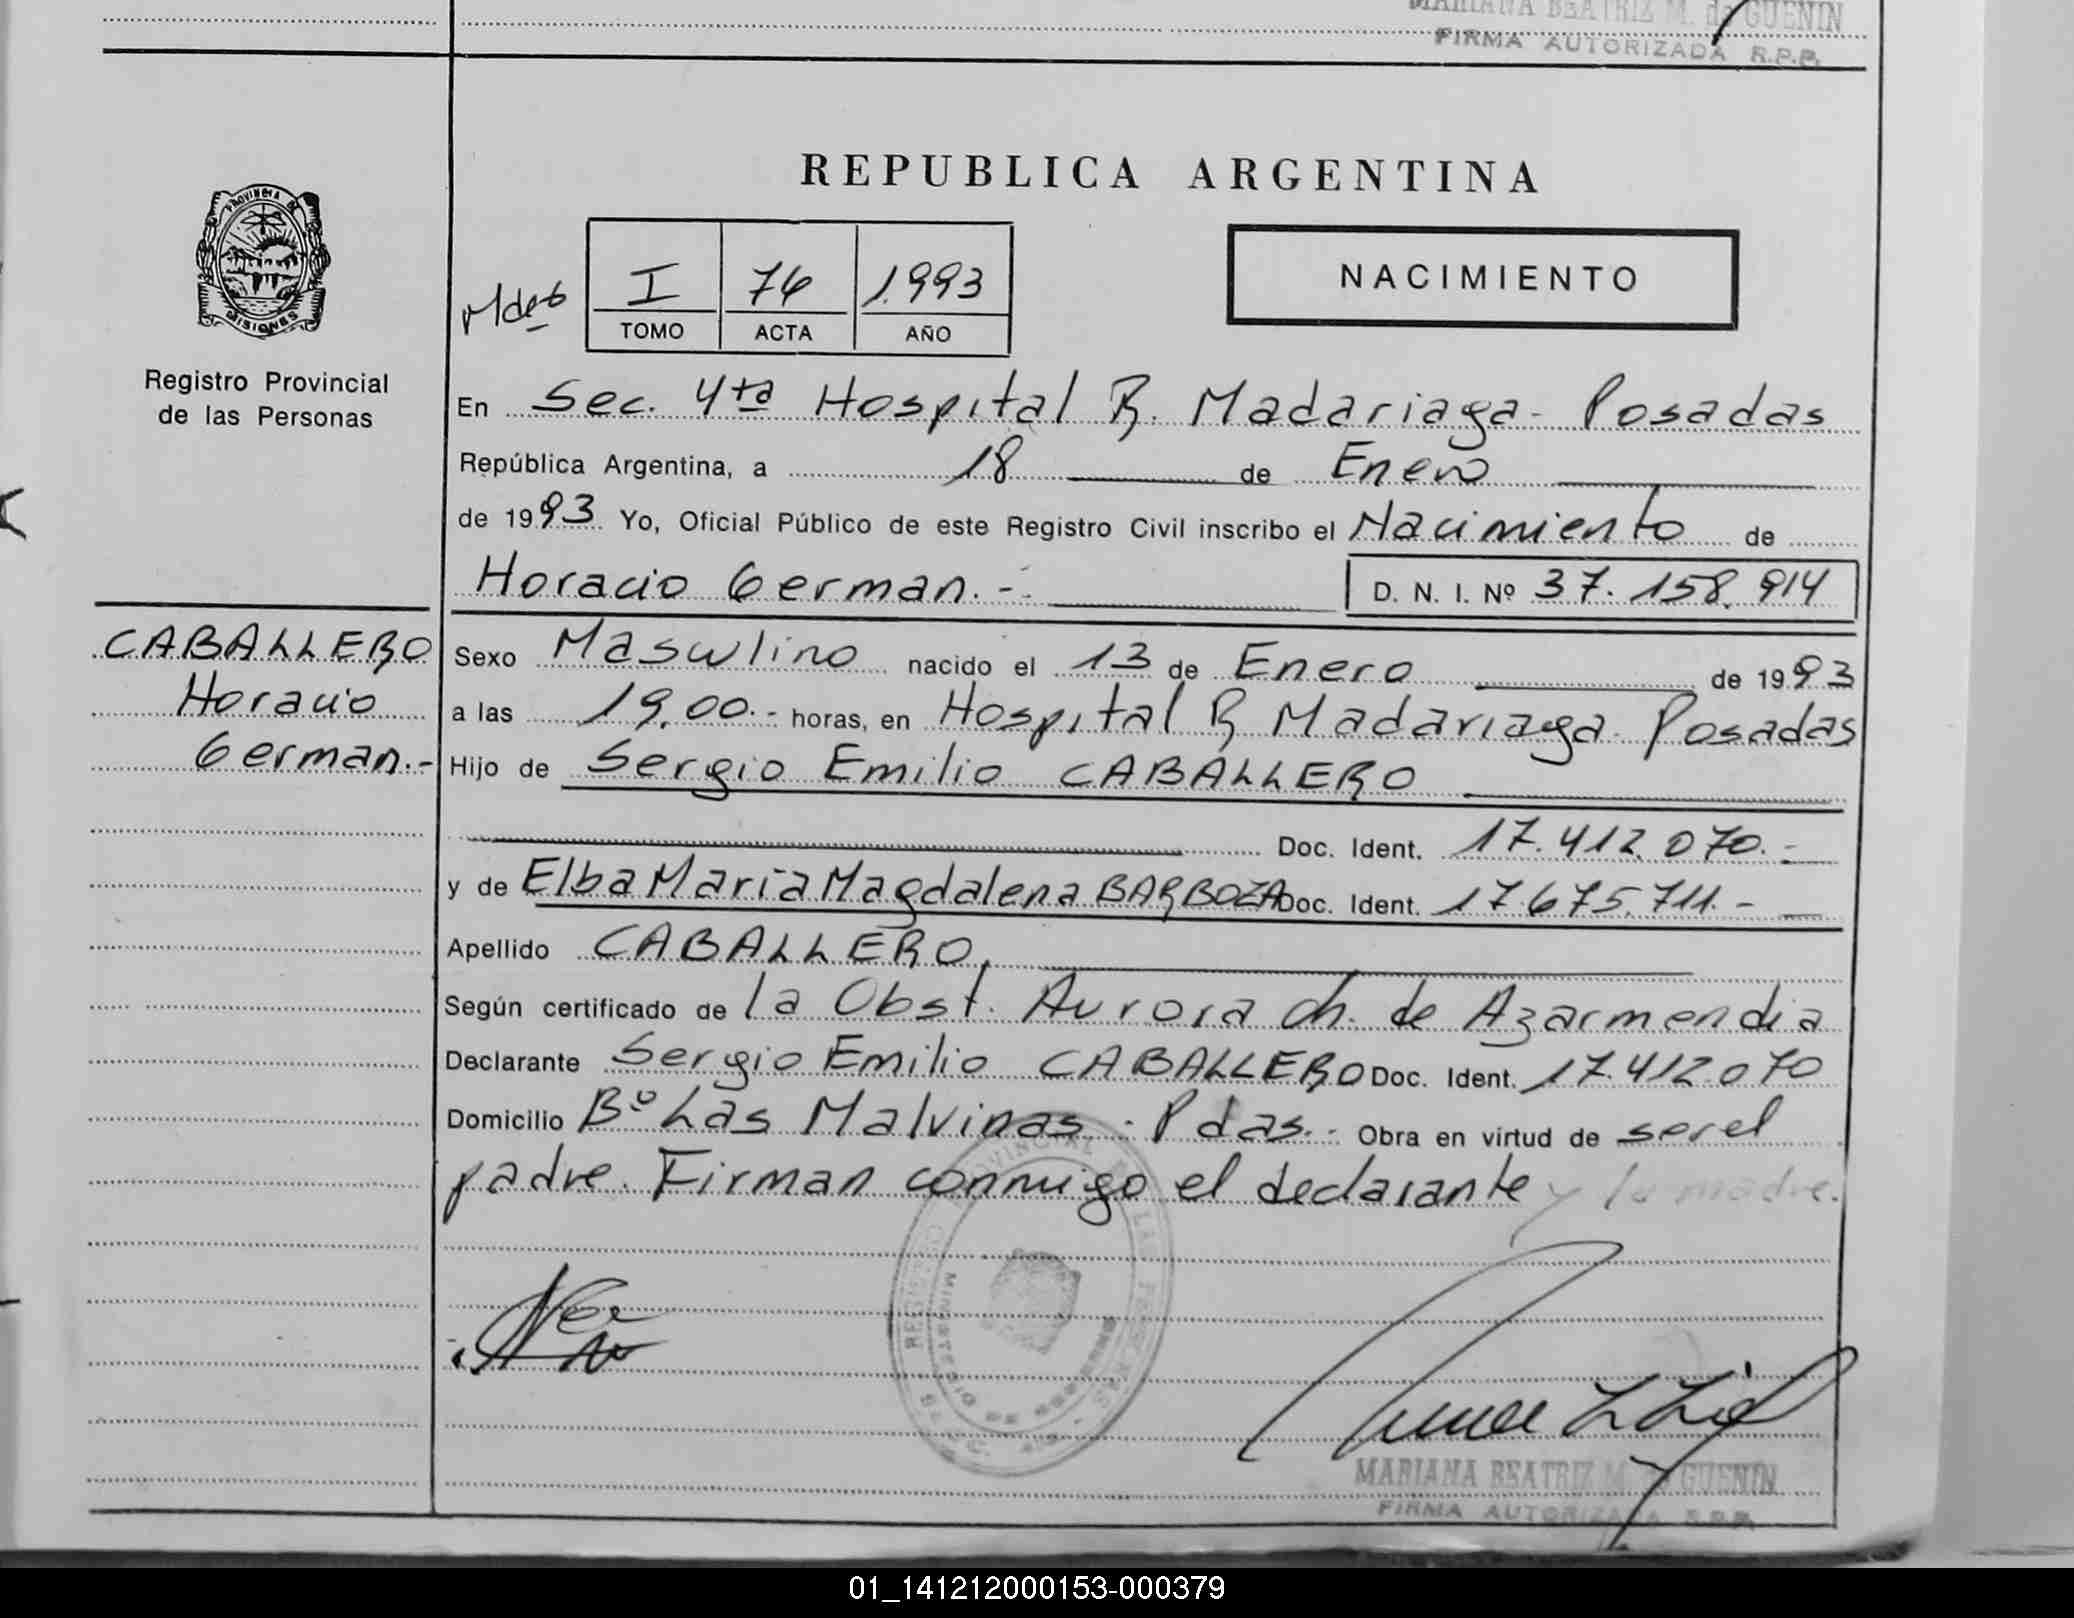 MARIANA BEATRIZ M. de GUENIN
FIRMA AUTORIZADA R.P.P.
PROVINCIA DE
MISIONES
Registro Provincial
de las Personas
REPUBLICA ARGENTINA
I 76 1.993
TOMO ACTA AÑO
NACIMIENTO
En Sec. 4ta Hospital R. Madariaga - Posadas
República Argentina, a 18 de Enero
de 1993. Yo, Oficial Público de este Registro Civil inscribo el Nacimiento de
Horacio German.-
D. N. I. Nº 37.158.914
CABALLERO
Horacio
German.-
Sexo Masculino nacido el 13 de Enero de 1993
a las 19,00.- horas, en Hospital R Madariaga - Posadas
Hijo de Sergio Emilio CABALLERO
Doc. Ident. 17.412.070.-
y de Elba Maria Magdalena BARBOZA Doc. Ident. 17.675.711.-
Apellido CABALLERO.
Según certificado de la Obst. Aurora Ch. de Azarmendia
Declarante Sergio Emilio CABALLERO Doc. Ident. 17.412.070
Domicilio Bº Las Malvinas.- Pdas.- Obra en virtud de ser el
padre. Firman conmigo el declarante y la madre.
MARIANA BEATRIZ M. de GUENIN
FIRMA AUTORIZADA R.P.P.
01_141212000153-000379